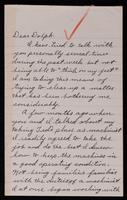 Dear Dolph:
I have tried to talk with
you personally several times
during the past week but not
being able to "think on my feet"
I am taking this means of
trying to clear up a matter
that has been bothering me
considerably.
A few months ago when
you and I talked about my
taking Ted's place as machinist
I readily agreed to take the
job and do the best I knew
how to keep the machines in
a good operating condition.
Not being familiar
with the Intertype machine
I at once began working with